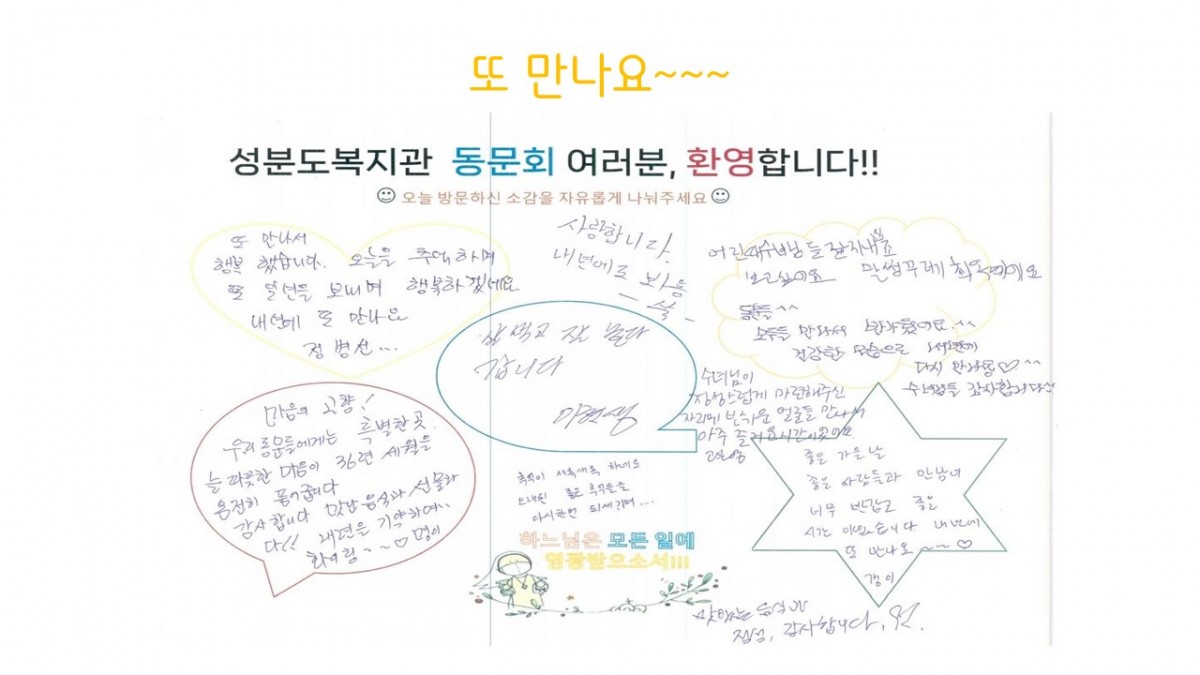 또 만나요~~~
성분도복지관 동문회 여러분, 환영합니다!!
오늘 방문하신 소감을 자유롭게 나눠주세요
또 만나서
행복 했습니다. 오늘을 추억하며
또 일년을 보내며 행복하겠네요
내년에 또 만나요
정병선...
사랑합니다.
내년에도 봐용
보고싶어요
동문들^^
모두들 만나서
건강한 모습으로
다시 만나용♡^^
수녀님들 감사합니다
잘 먹고 잘 놀다
갑니다
수녀님이
정성스럽게 마련해주신
자리에 반가운 얼굴들 만나서
아주 즐거운시간이었어요
마음의 고향!
우리 동문들에게는 특별한 곳.
늘 따뜻한 마음이 36년 세월을
온전히 품어줍니다
감사합니다 맛난 음식과 선물과
다!! 내년을 기약하며..
화이팅~~♡
추억이 새록새록 하네요
오래된 좋은 추억들을
다시한번 되새기며....
좋은 가을날
좋은 사람들과 만남이
너무 반갑고 좋은
시간 이었습니다 내년에
또 만나요~~♡
하느님은 모든 일에
영광받으소서!!!
맛있는 음식과
정성, 감사합니다.